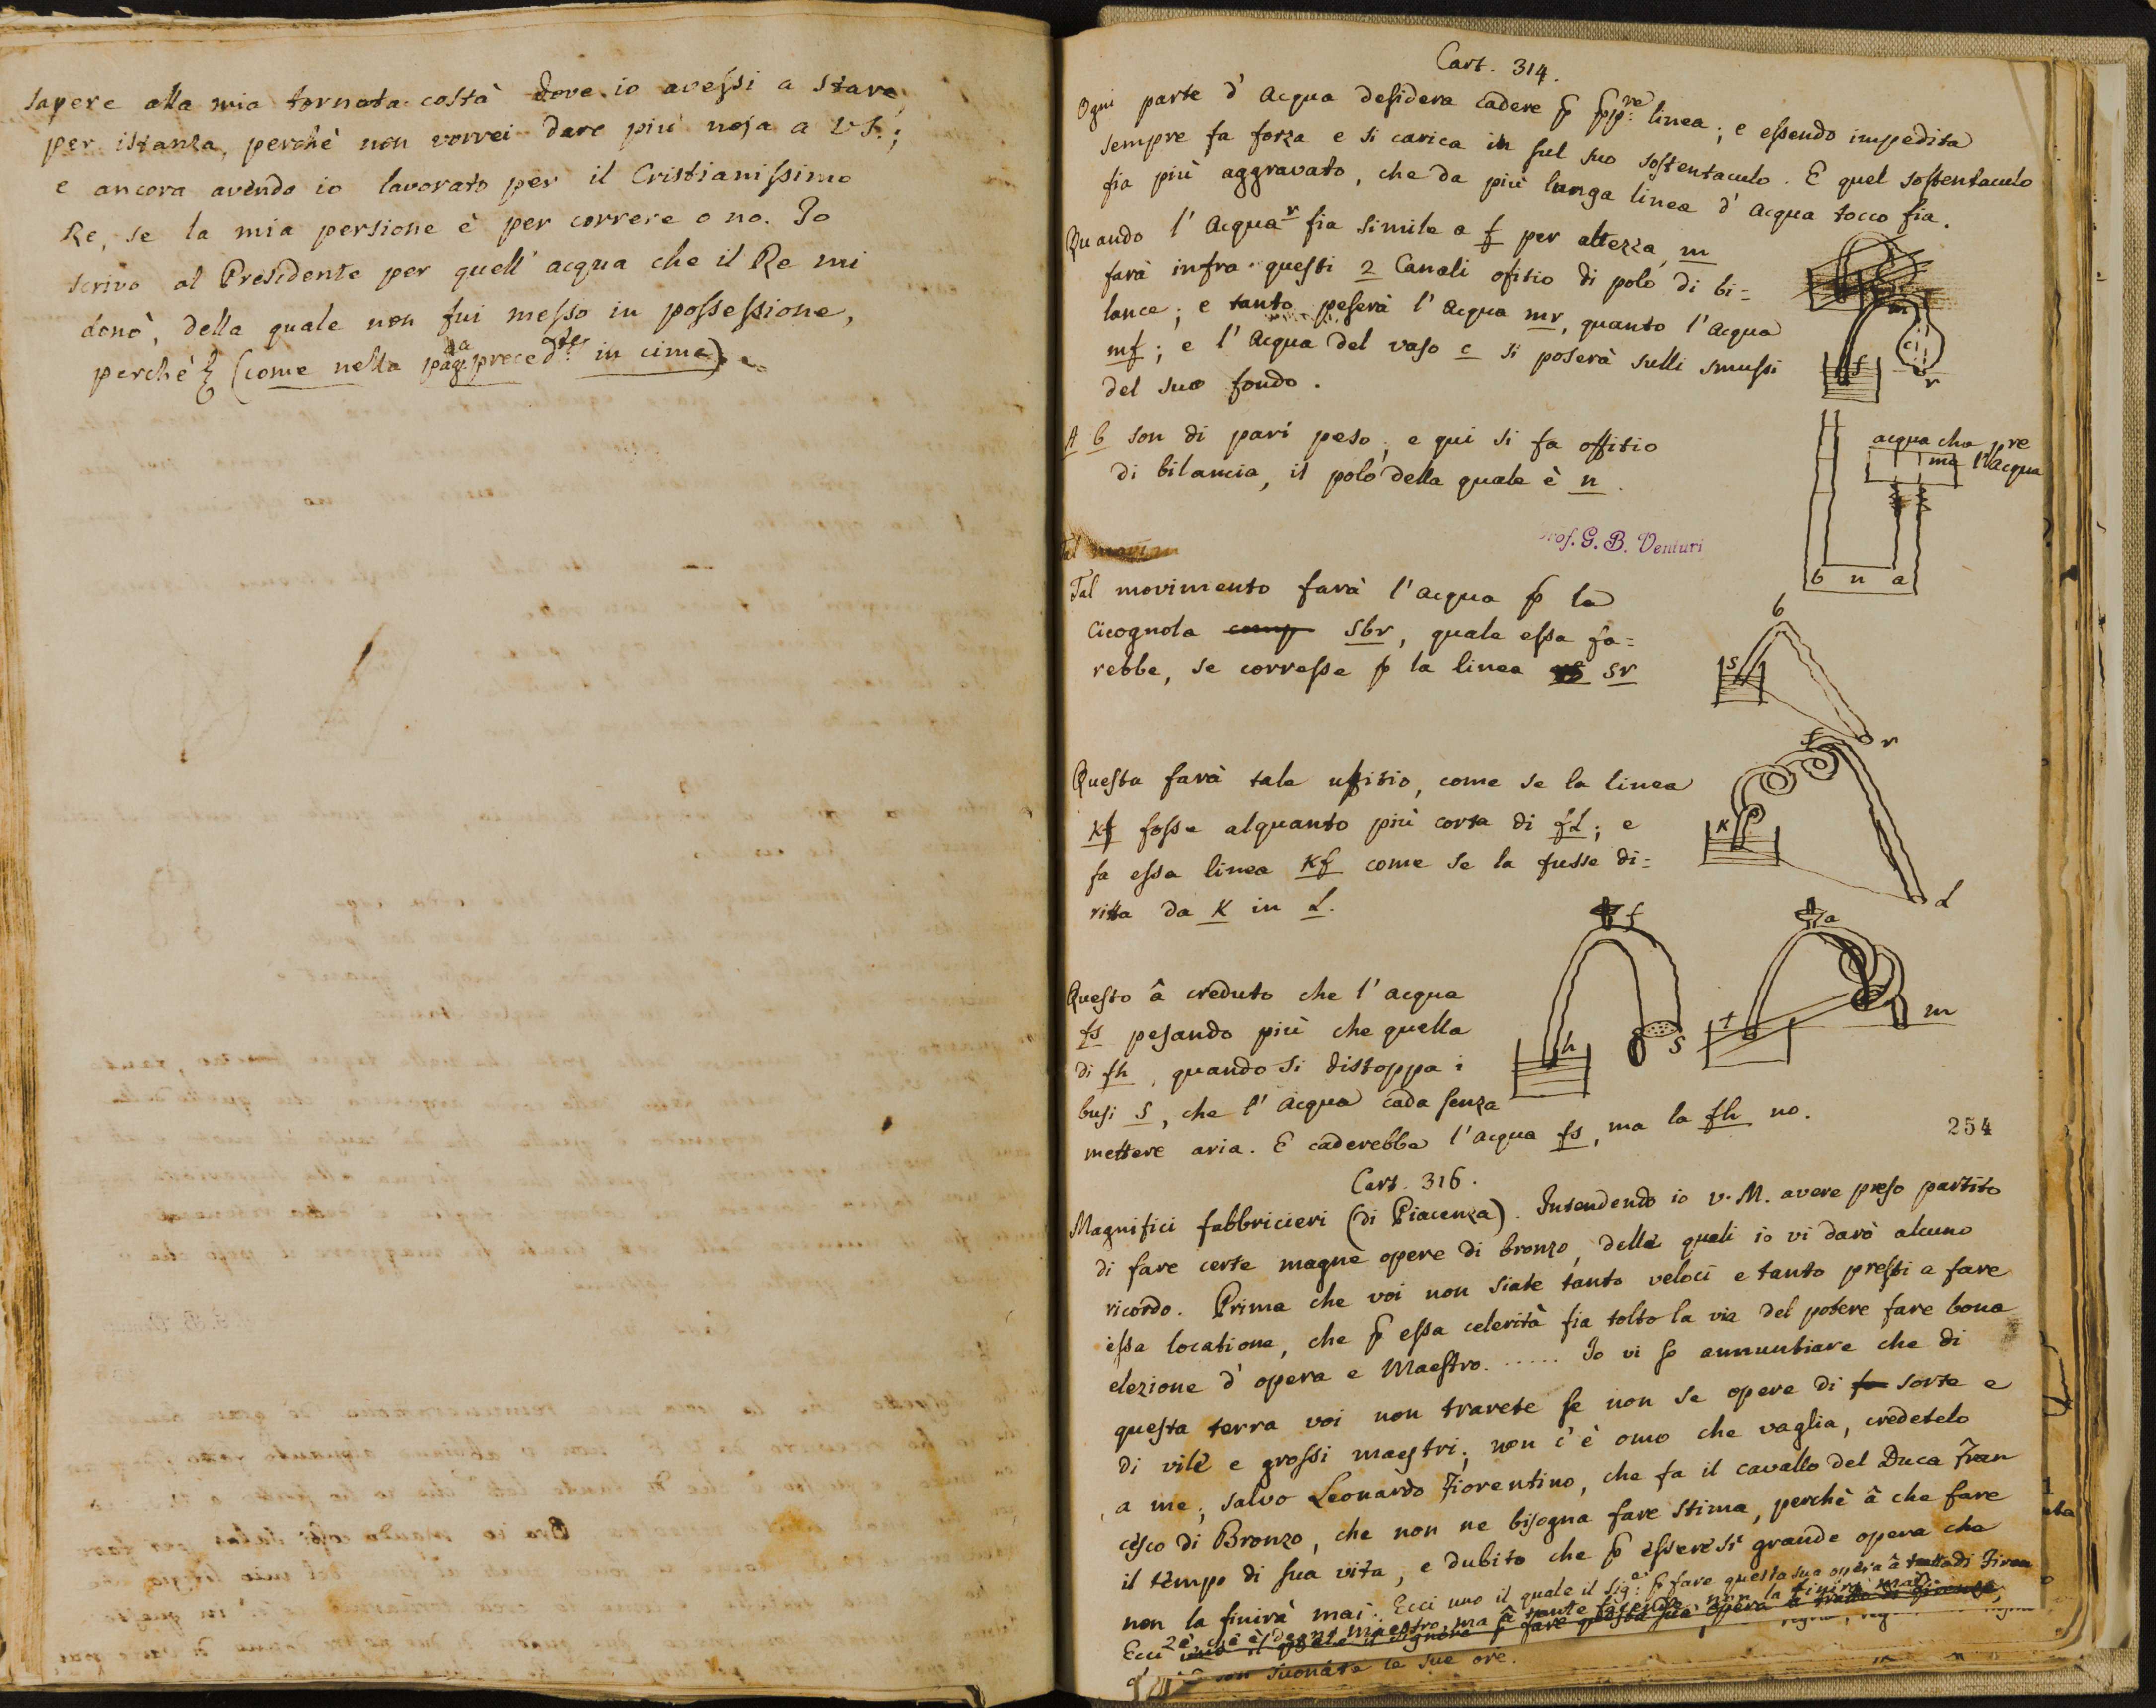 sapere alla mia tornata costà dove io avessi a stare
per istanza, perchè non vorrei dare più noja a VS.;
e ancora avendo io lavorato per il Cristianissimo
Re, se la mia pensione è per correre o no. Io
scrivo al Presidente per quell' acqua che il Re mi
donò, della quale non fui messo in possessione,
perchè (come nella pag.a preced.te in cima)
Cart. 314.
Ogni parte d' Acqua desidera cadere p pp.re linea; e essendo impedita
sempre fa forza e si carica in sul suo sostentaculo. E quel sostentaculo
fia più aggravato, che da più lunga linea d' acqua tocco fia.
Quando l' Acqua r fia simile a f per altezza, m
farà infra questi 2 Canali ofitio di polo di bi=
lance; e tanto peserà l' Acqua mr, quanto l' Acqua
mf; e l' Acqua del vaso c si poserà sulli smussi
del suo fondo.
m
f
c
r
A b son di pari peso; e qui si fa offitio
di bilancia, il polo della quale è n.
acqua cha pre
me l'Acqua
b n a
Prof. G. B. Venturi
Tal movim
Tal movimento farà l' Acqua p la
Cicognola comp sbr, quale essa fa=
rebbe, se corresse p la linea sr
b
s
r
Questa farà tale ufitio, come se la linea
Kf fosse alquanto più corta di fL; e
fa essa linea Kf come se la fusse di=
ritta da K in L.
f
K
L
Questo â creduto che l' acqua
fs pesando più che quella
di fh, quando si distoppa i
busi s, che l' Acqua cada senza
mettere aria. E caderebbe l' Acqua fs, ma la fh no.
f
h
s
a
t
m
254
Cart. 316.
Magnifici fabbricieri (di Piacenza). Intendendo io v. M. avere preso partito
di fare certe magne opere di bronzo, delle quali io vi darò alcuno
ricordo. Prima che voi non siate tanto veloci e tanto presti a fare
essa locatione, che p essa celerità sia tolto la via del potere fare bona
elezione d' opera e Maestro. ...... Io vi so annuntiare che di
questa terra voi non trarete se non se opere di fo sorte e
di vile e grossi maestri; non c' è omo che vaglia, credetelo
a me, salvo Leonardo Fiorentino, che fa il cavallo del Duca Fran
cesco di Bronzo, che non ne bisogna fare stima, perchè â che fare
il tempo di sua vita, e dubito che p essere sì grande opera che
non la finirà mai. Ecci uno il quale il Sig.e p fare questa sua opera â tratto di Firen
2è, che è degno maestro, ma â tante faccende, non la finirà mai
Ecci uno il quale il Signore p fare questa sua opera â tratto di Firenze,
son suonate le sue ore.